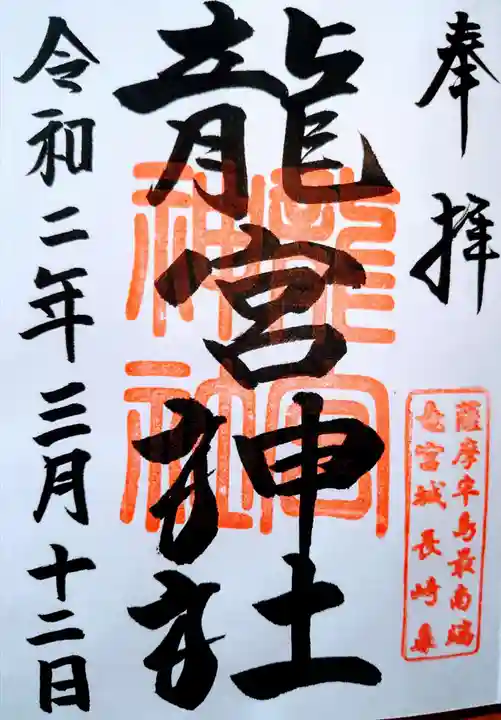 奉拝
薩摩半島最南端
竜宮城長崎鼻
龍宮神社
龍宮
神社
令和二年三月十二日